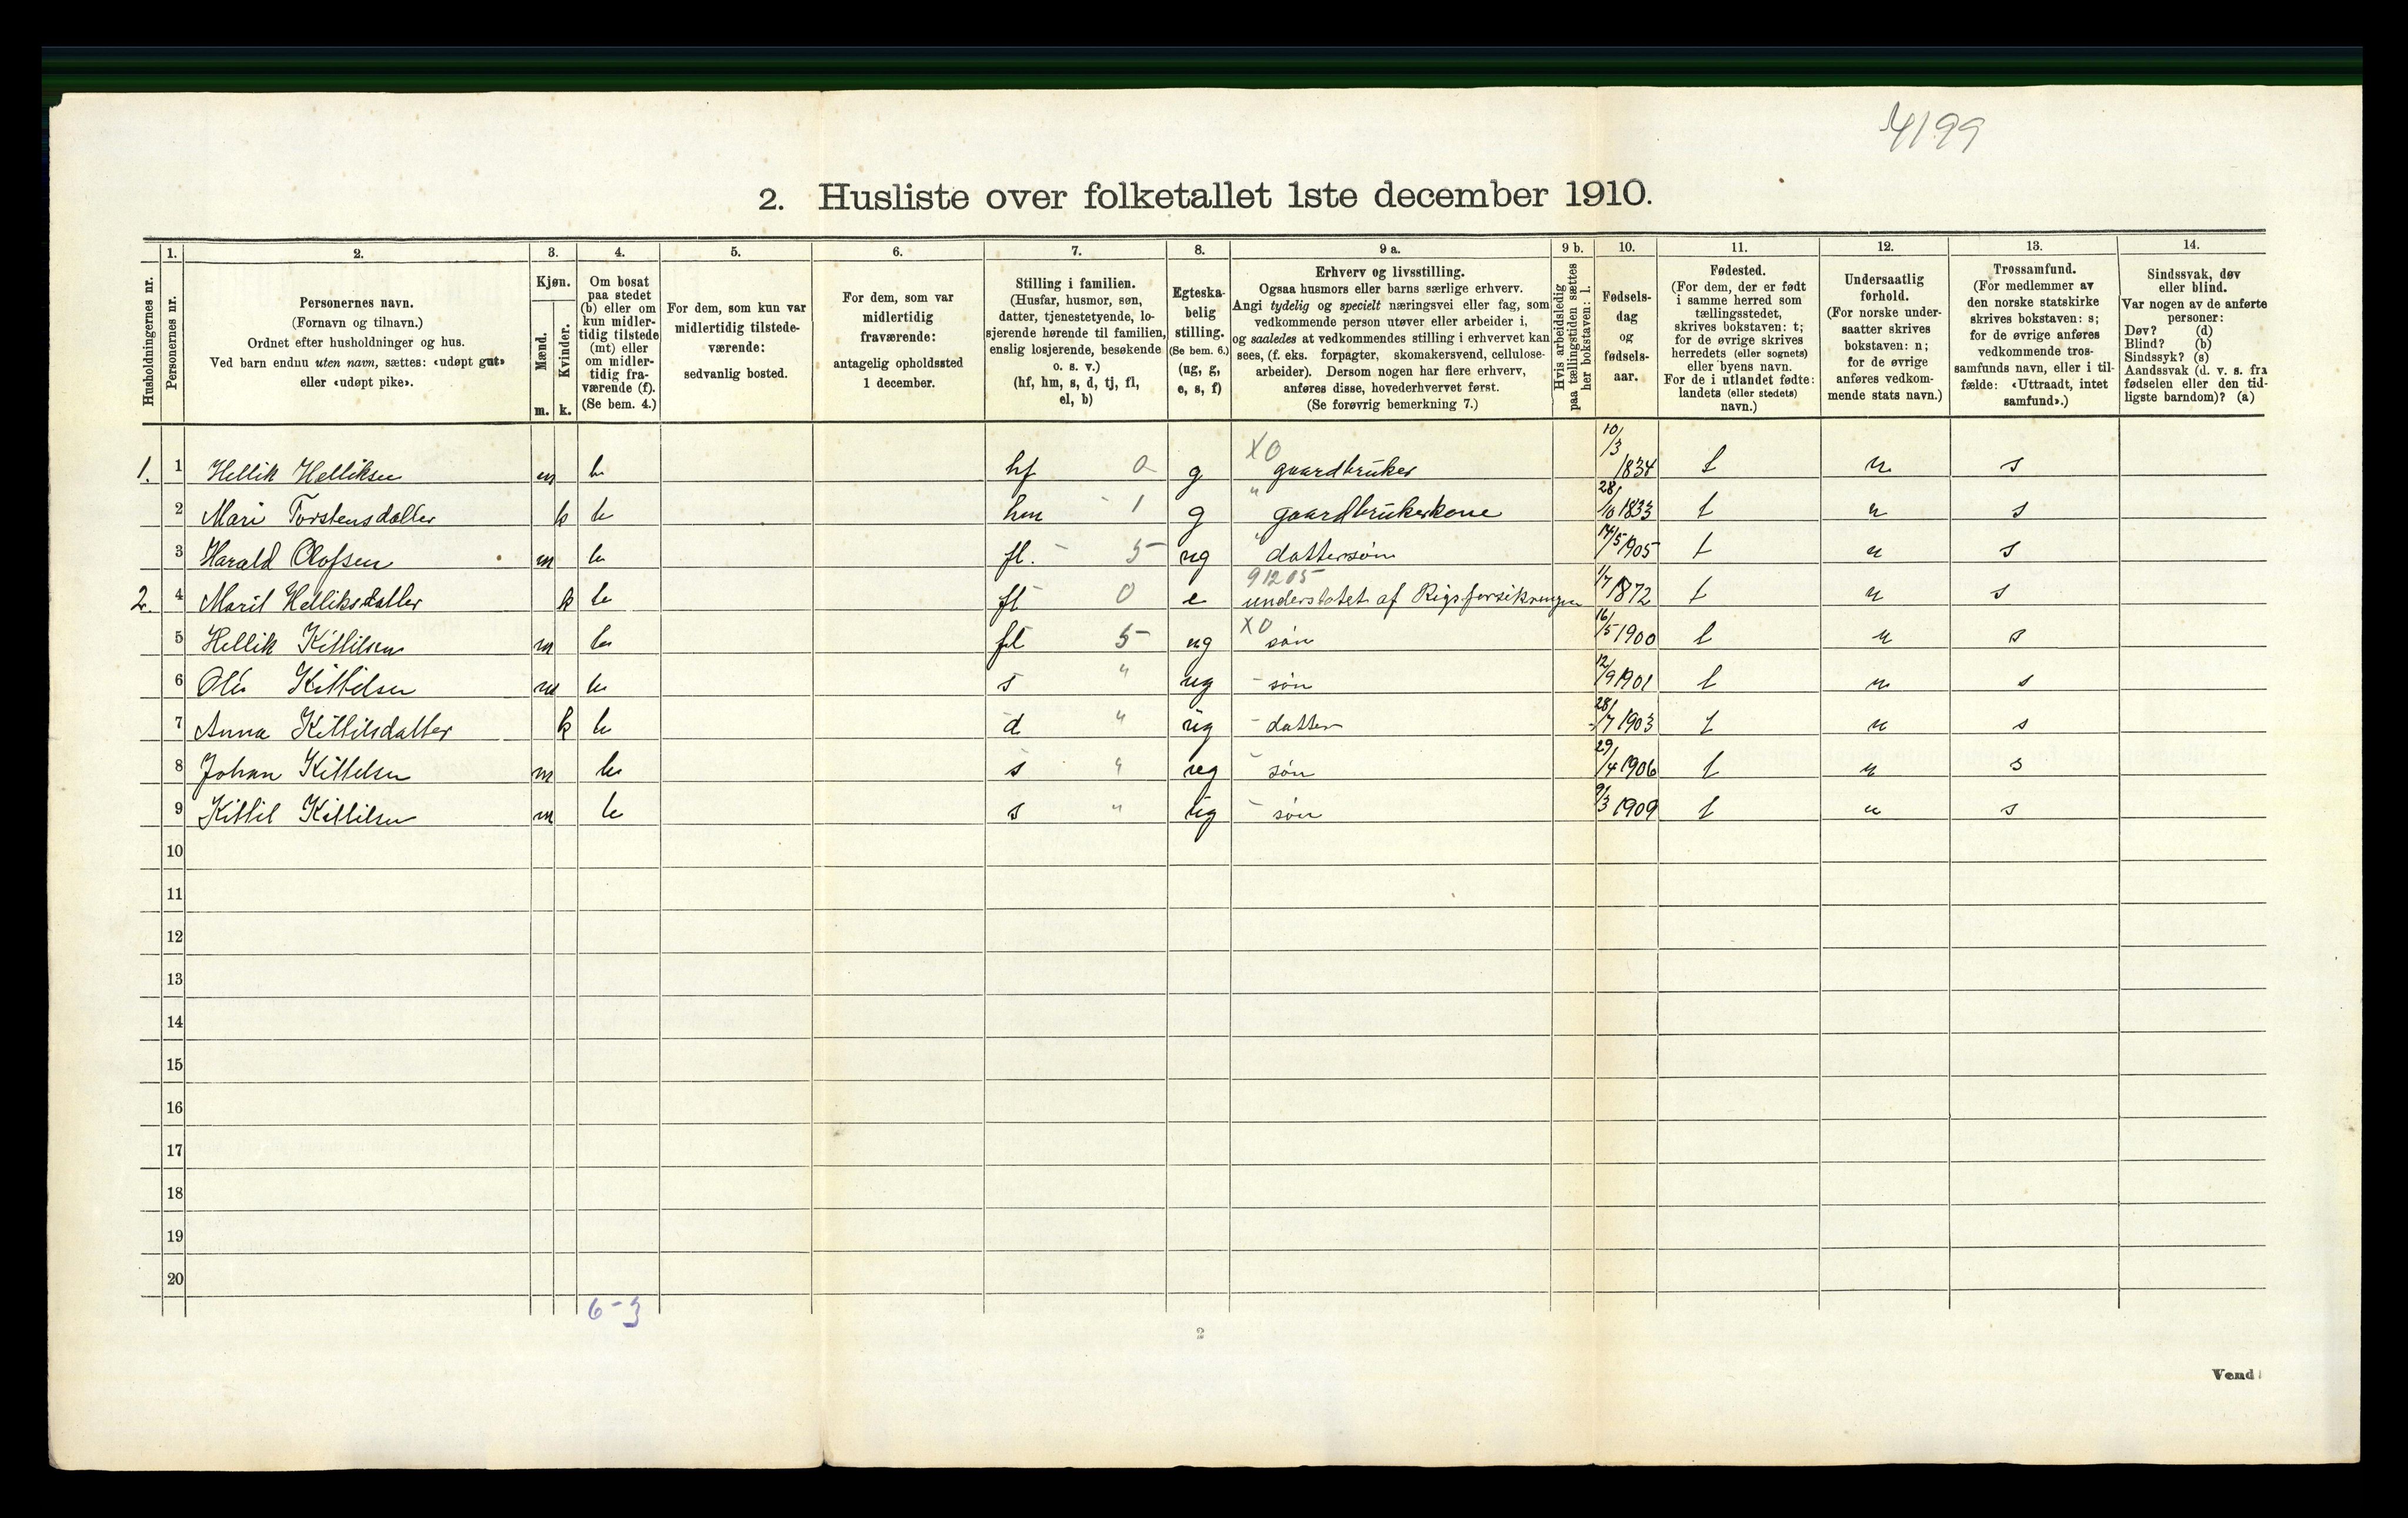 4199
2. Husliste over folketallet 1ste december 1910.
1. 2. 3. 4. 5. 6. 7. 8. 9 a. 9 b. 10. 11. 12. 13. 14.
Husholdningernes nr.
Personernes nr.
Personernes navn.
(Fornavn og tilnavn.)
Ordnet efter husholdninger og hus.
Ved barn endnu uten navn, sættes: «udøpt gut»
eller «udøpt pike».
Kjøn.
Mænd.
Kvinder.
m. k.
Om bosat
paa stedet
(b) eller om
kun midler-
tidig tilstede
(mt) eller
om midler-
tidig fra-
værende (f).
(Se bem. 4.)
For dem, som kun var
midlertidig tilstede-
værende:
sedvanlig bosted.
For dem, som var
midlertidig
fraværende:
antagelig opholdssted
1 december.
Stilling i familien.
(Husfar, husmor, søn,
datter, tjenestetyende, lo-
sjerende hørende til familien,
enslig losjerende, besøkende
o. s. v.)
(hf, hm, s, d, tj, fl,
el, b)
Egteska-
belig
stilling.
(Se bem. 6.)
(ug, g,
e, s, f)
Erhverv og livsstilling.
Ogsaa husmors eller barns særlige erhverv.
Angi tydelig og specielt næringsvei eller fag, som
vedkommende person utøver eller arbeider i,
og saaledes at vedkommendes stilling i erhvervet kan
sees, (f. eks. forpagter, skomakersvend, cellulose-
arbeider). Dersom nogen har flere erhverv,
anføres disse, hovederhvervet først.
(Se forøvrig bemerkning 7.)
Hvis arbeidsledig
paa tællingstiden sættes
her bokstaven: l.
Fødsels-
dag
og
fødsels-
aar.
Fødested.
(For dem, der er født
i samme herred som
tællingsstedet,
skrives bokstaven: t;
for de øvrige skrives
herredets (eller sognets)
eller byens navn.
For de i utlandet fødte:
landets (eller stedets)
navn.)
Undersaatlig
forhold.
(For norske under-
saatter skrives
bokstaven: n;
for de øvrige
anføres vedkom-
mende stats navn.)
Trossamfund.
(For medlemmer av
den norske statskirke
skrives bokstaven: s;
for de øvrige anføres
vedkommende tros-
samfunds navn, eller i til-
fælde: «Uttraadt, intet
samfund».)
Sindssvak, døv
eller blind.
Var nogen av de anførte
personer:
Døv? (d)
Blind? (b)
Sindssyk? (s)
Aandssvak (d. v. s. fra
fødselen eller den tid-
ligste barndom)? (a)
1. 1 Hellik Helliksen m b hf 0 g X0 gaardbruker 10/3 1834 t n s
2 Mari Torstensdatter k b hm 1 g " gaardbrukerkone 28/10 1833 t n s
3 Harald Olofsen m b fl. 5 ug " dattersøn 14/5 1905 t n s
2. 4 Marit Helliksdatter k b fl 0 e 91205 understøtet af Rigsforsikringen 1/7 1872 t n s
5 Hellik Kittilsen m b fl 5 ug X0 søn 16/5 1900 t n s
6 Ole Kittelsen m b s " ug - søn 12/9 1901 t n s
7 Anna Kittilsdatter k b d " ug - datter 28/7 1903 t n s
8 Johan Kittelsen m b s " ug - søn 29/4 1906 t n s
9 Kittil Kittilsen m b s " ug - søn 9/3 1909 t n s
10
11
12
13
14
15
16
17
18
19
20
6-3
2
Vend